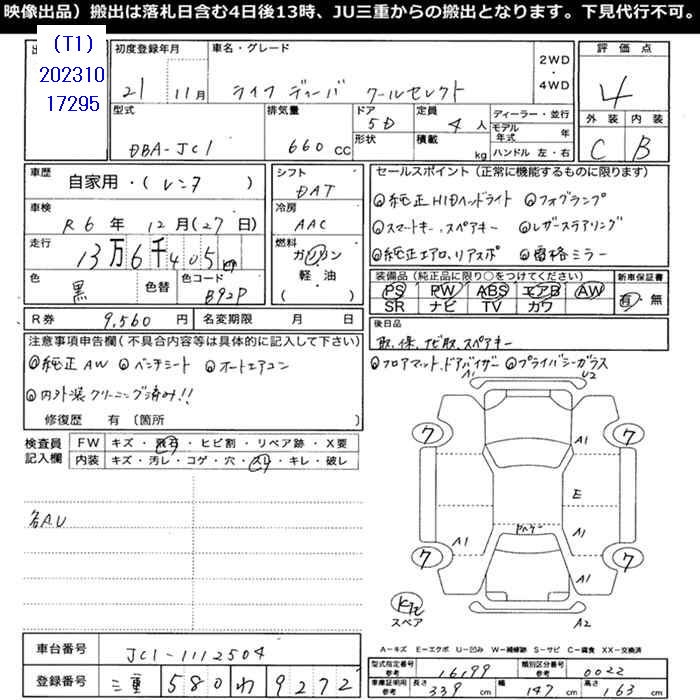 映像出品）搬出は落札日含む4日後13時、JU三重からの搬出となります。下見代行不可。
(T1)
202310
17295
初度登録年月
21 11月
車名・グレード
ライフ ディーバ クールセレクト
2WD・4WD
評価点
4
外装 内装
C B
型式
DBA-JC1
排気量
660 CC
ドア形状
5D
定員 4人
積載 kg
ディーラー・並行
モデル年式 年
ハンドル 左・右
車歴
自家用・(レンタ)
シフト
DAT
車検
R6年 12月(27日)
冷房
AAC
走行
13万6千405
燃料
ガソリン
軽・油
( )
色
黒
色替
色コード
B92P
R券 9,560円
名変期限 月 日
セールスポイント（正常に機能するものに限ります）
◎純正HIDヘッドライト ◎フォグランプ
◎スマートキー、スペアキー ◎レザーステアリング
◎純正エアロ、リアスポ ◎電格ミラー
装備品（純正品に限り○をつけてください）
PS PW ABS エアB AW
SR ナビ TV カワ
新車保証書
有・無
後日品
取、保、ナビ取、スペアキー
◎フロアマット、ドアバイザー ◎プライバシーガラス
注意事項申告欄(不具合内容等は具体的に記入して下さい)
◎純正AW ◎ベンチシート ◎オートエアコン
◎内外装クリーニング済み!!
修復歴 有〔箇所 〕
検査員記入欄
FW キズ・飛石・ヒビ割・リペア跡・X要
内装 キズ・汚レ・コゲ・穴・スレ・キレ・破レ
各A.U
A1 U2
7 A1 7
E
A1 A1
7 A1 7
スペア
A2
A－キズ E－エクボ U－凹み W－補修跡 S－サビ C－腐食 XX－交換済
車台番号 JC1-1112504
登録番号 三重 580 わ 9272
型式指定番号 参考 16199
類別区分番号 参考 0022
車庫証明用 参考 長さ 339 cm 幅 147 cm 高さ 163 cm